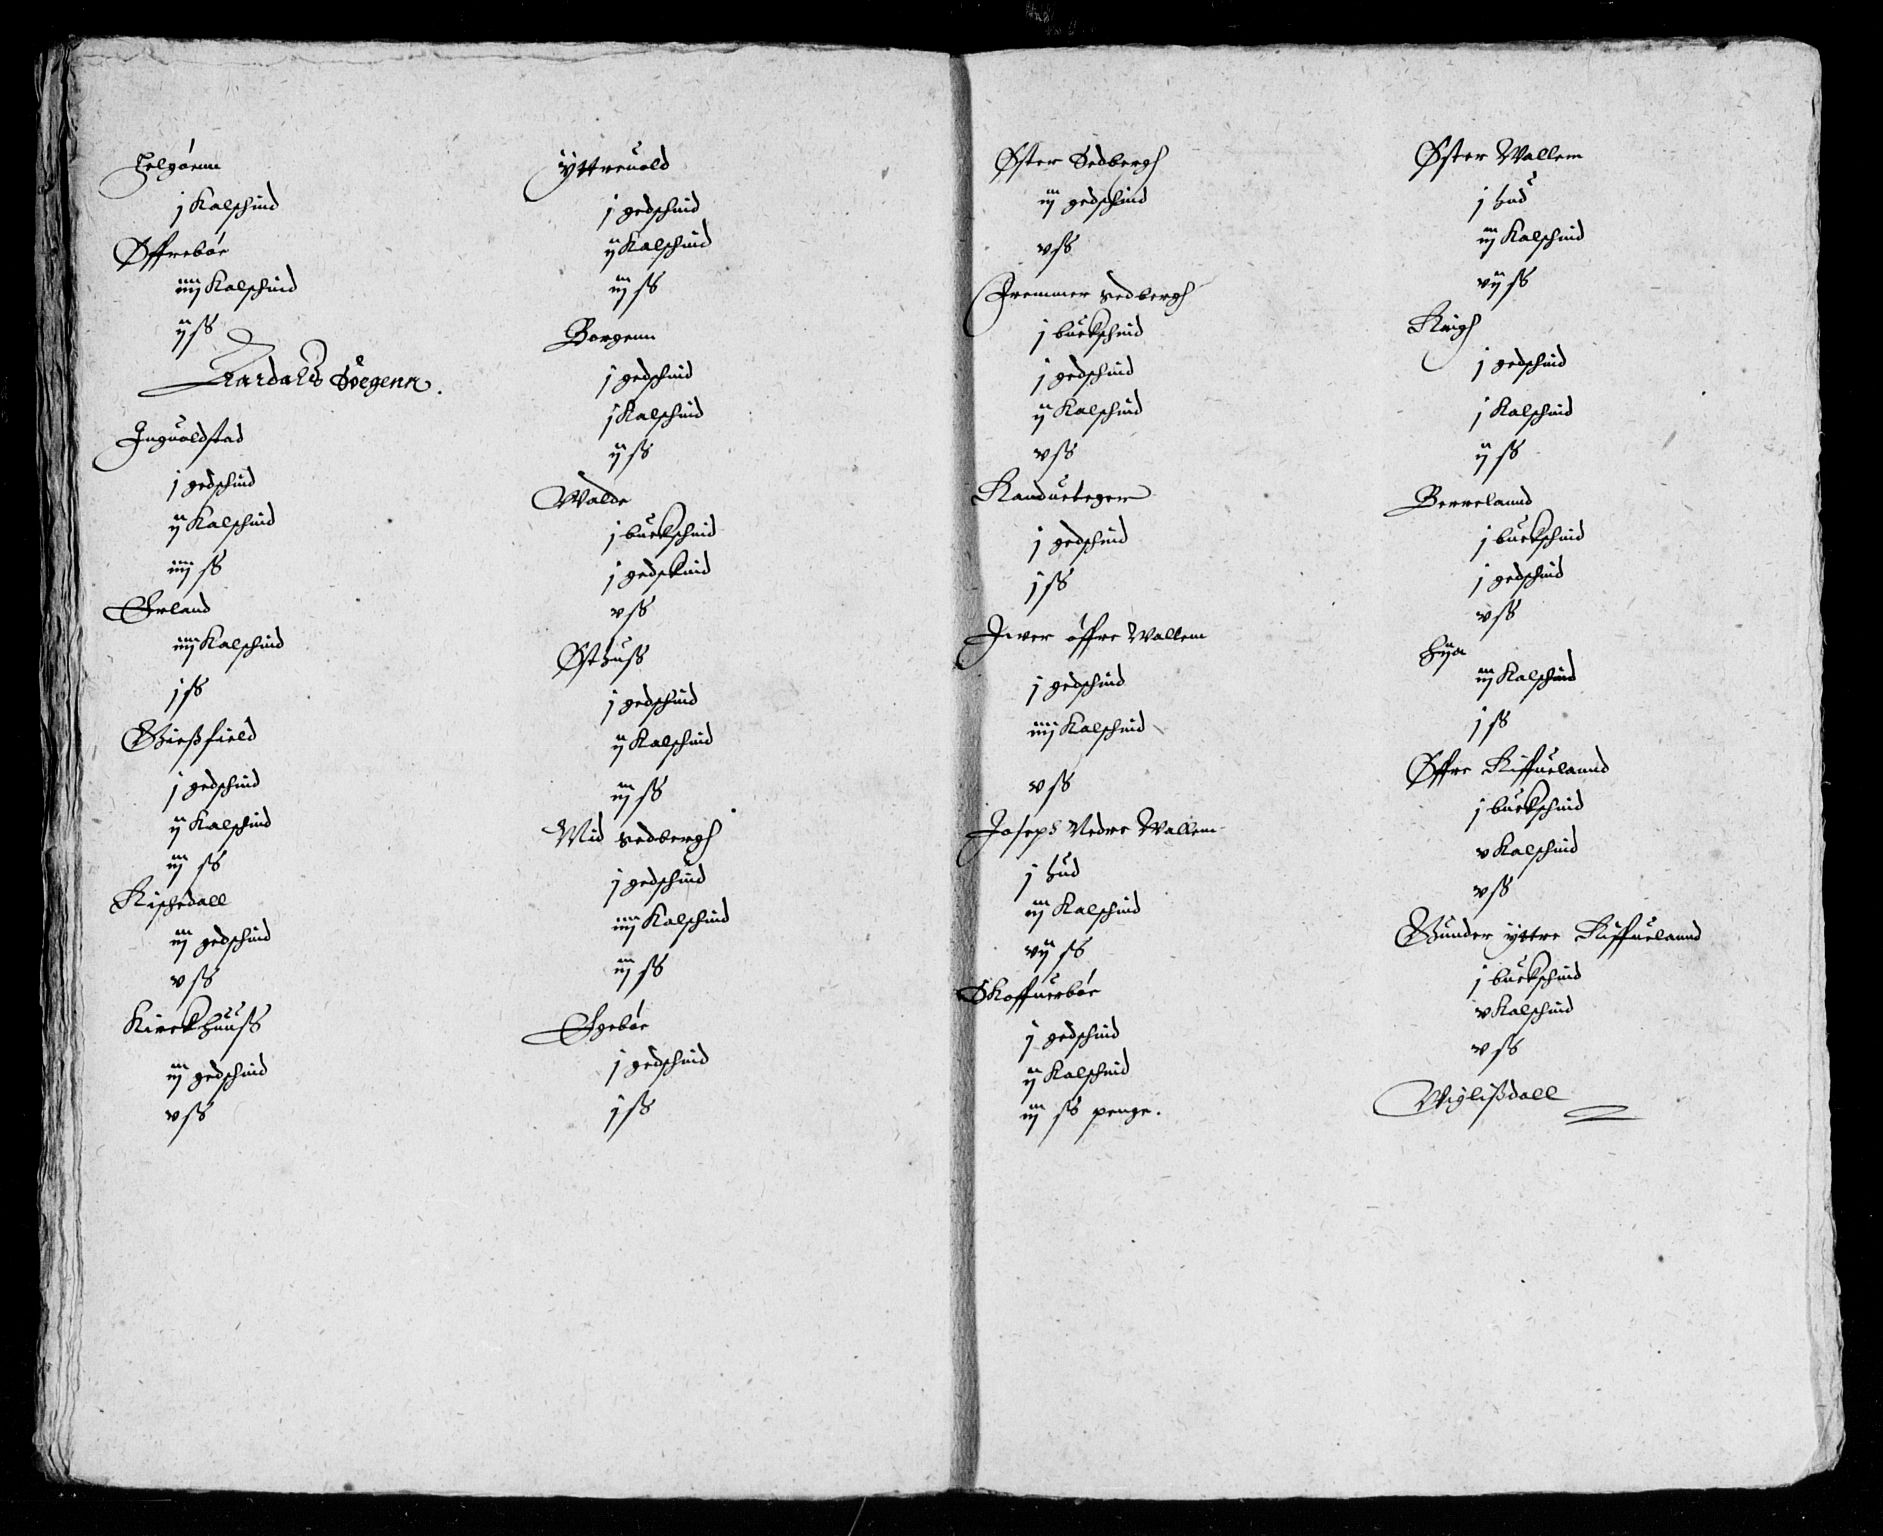 Helgöenn
j Kalschind
Øffreböe
iiij Kalschind
ij ss
Aardals Soegenn.
Inguoldstad
j gedschind
ij Kalschind
iiij ss
Erland
iiij Kalschind
j ss
Viessfield
j gedschind
ij Kalschind
iij ss
Rissedall
iij gedschind
v ss
Kirckhuuss
iij gedschind
v ss
ÿttreuold
j gedschind
ij Kalschind
iij ss
Borgenn
j gedschind
j Kalschind
ij ss
Walde
j buckschind
j gedskind
v ss
Østhuss
j gedschind
ij Kalschind
iij ss
Mid Sedbergh
j gedschind
iiij Kalschind
iij ss
Egeböe
j gedschind
j ss
Øster Sedbergh
iij gedschind
v ss
Fremmer Sedbergh
j buckschind
j gedschind
ij Kalschind
v ss
j gedschind
j ss
Iver öffre Wallem
j gedschind
iiij Kalschind
v ss
Joseph Nedre Wallem
j hud
iij Kalschind
vij ss
Skoffuerböe
j gedschind
ij Kalschind
iij ss penge.
Øster Wallem
j hud
iij Kalschind
vij ss
Riigh
j gedschind
j Kalschind
ij ss
Berrelannd
j buckschind
j gedschind
v ss
Hÿa
iij Kalschind
j ss
Øffre Riffuelannd
j buckschind
v Kalschind
v ss
Gunder ÿttre Riffuelannd
j buckschind
v Kalschind
v ss
Wiglissdall